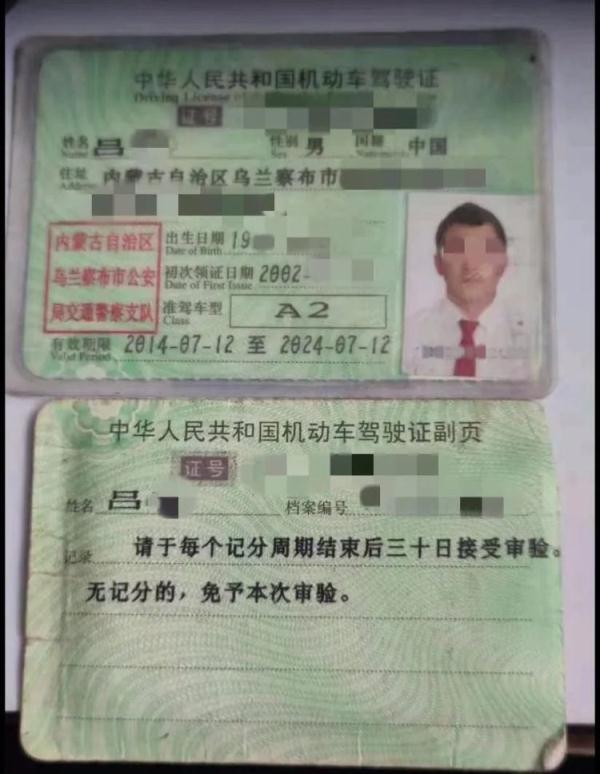 中华人民共和国机动车驾驶证
Driving License of
证号
姓名 吕 性别 男 国籍 中国
Name Sex Nationality
住址 内蒙古自治区乌兰察布市
Address
内蒙古自治区
乌兰察布市公安
局交通警察支队
出生日期 19
Date of Birth
初次领证日期 2002-
Date of First Issue
准驾车型 A2
Class
有效期限 2014-07-12 至 2024-07-12
Valid Period
中华人民共和国机动车驾驶证副页
证号
姓名 吕 档案编号
记录 请于每个记分周期结束后三十日接受审验。
无记分的，免予本次审验。